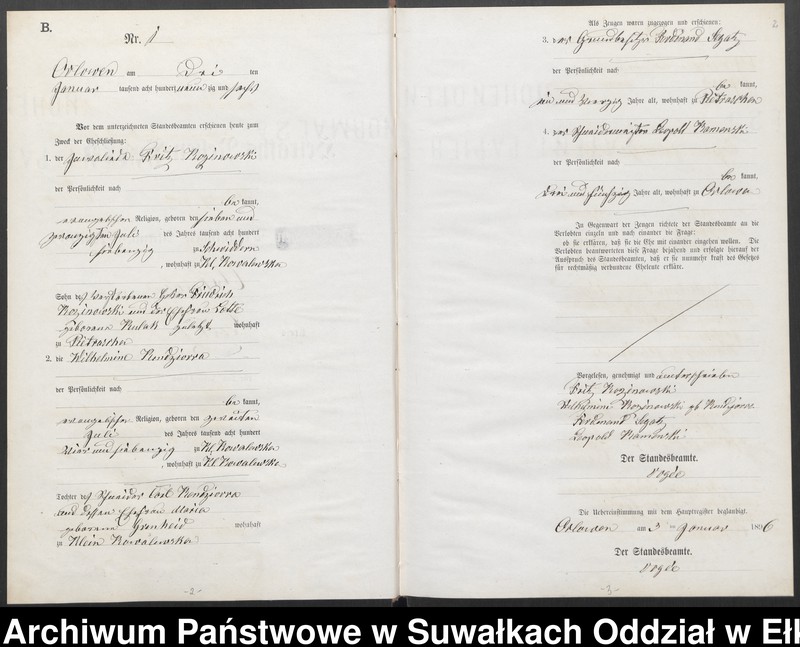 B.
Nr. 1
Orlowen am Drei ten
Januar tausend acht hundert neun zig und sechs
Vor dem unterzeichneten Standesbeamten erschienen heute zum
Zweck der Eheschließung:
1. der Fritz Kozinowski
der Persönlichkeit nach
be kannt,
evangelischer Religion, geboren den sieben und
zwanzigsten Juli des Jahres tausend acht hundert
siebenzig zu Schwiddern
, wohnhaft zu Kl. Kowalewsken
Sohn des verstorbenen Friedrich
Kozinowski und der Ehefrau Lotte
geborene Kulak zuletzt wohnhaft
zu Pietraschen
2. die Wilhelmine Kendziorra
der Persönlichkeit nach
be kannt,
evangelischer Religion, geboren den zweiten
Juli des Jahres tausend acht hundert
vier und siebenzig zu Kl. Kowalewsken
, wohnhaft zu Kl. Kowalewsken
Tochter des Schneider Carl Kendziorra
und dessen Ehefrau Maria
geborene wohnhaft
zu Klein Kowalewsken
-2-
2
Als Zeugen waren zugezogen und erschienen:
3. der Grundbesitzer Ferdinand
der Persönlichkeit nach
be kannt,
ein und vierzig Jahre alt, wohnhaft zu Pietraschen
4. der Schneidermeister Leopold Kamonski
der Persönlichkeit nach
be kannt,
drei und fünfzig Jahre alt, wohnhaft zu Orlowen
In Gegenwart der Zeugen richtete der Standesbeamte an die
Verlobten einzeln und nach einander die Frage:
ob sie erklären, daß sie die Ehe mit einander eingehen wollen. Die
Verlobten beantworteten diese Frage bejahend und erfolgte hierauf der
Ausspruch des Standesbeamten, daß er sie nunmehr kraft des Gesetzes
für rechtmäßig verbundene Eheleute erkläre.
Vorgelesen, genehmigt und unterschrieben
Fritz Kozinowski
Wilhelmine Kozinowski gb Kendziorra
Ferdinand
Leopold Kamonski
Der Standesbeamte.
Die Uebereinstimmung mit dem Hauptregister beglaubigt.
Orlowen am 3 ten Januar 1896
Der Standesbeamte.
-3-
Archiwum Państwowe w Suwałkach Oddział w Ełk